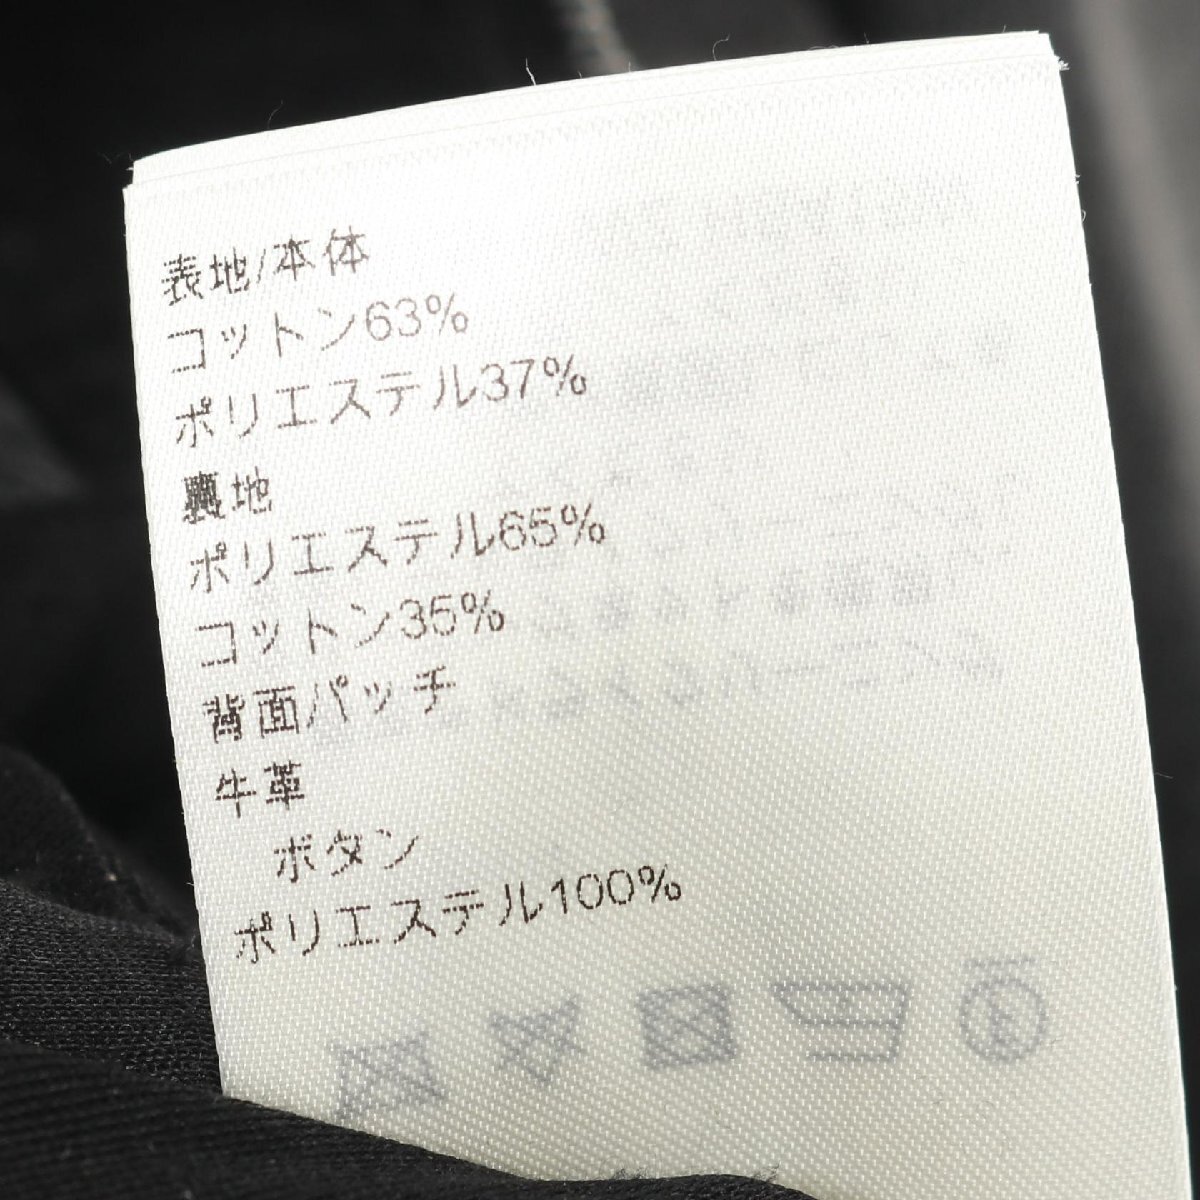 表地/本体
コットン63%
ポリエステル37%
裏地
ポリエステル65%
コットン35%
背面パッチ
牛革
ボタン
ポリエステル100%